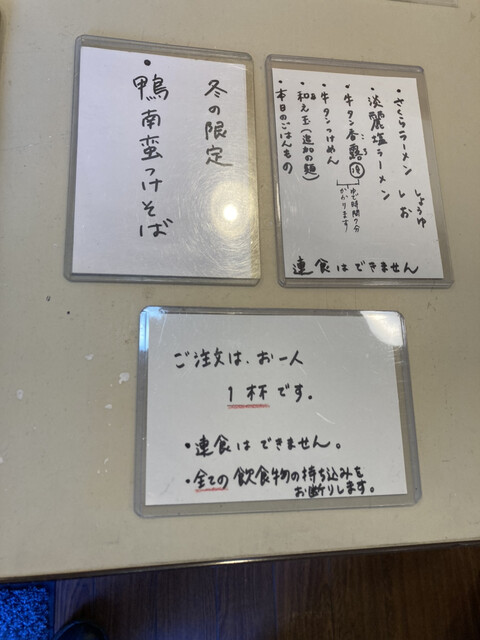 冬の限定
・鴨南蛮つけそば
・さくらラーメン しょうゆ
しお
・淡麗塩ラーメン
・牛タン香露
・牛タンつけめん
ゆで時間7分
かかります
・和え玉(追加の麺)
・本日のごはんもの
連食はできません
ご注文は、お一人
1杯です。
・連食はできません。
・全ての飲食物の持ち込みを
お断りします。